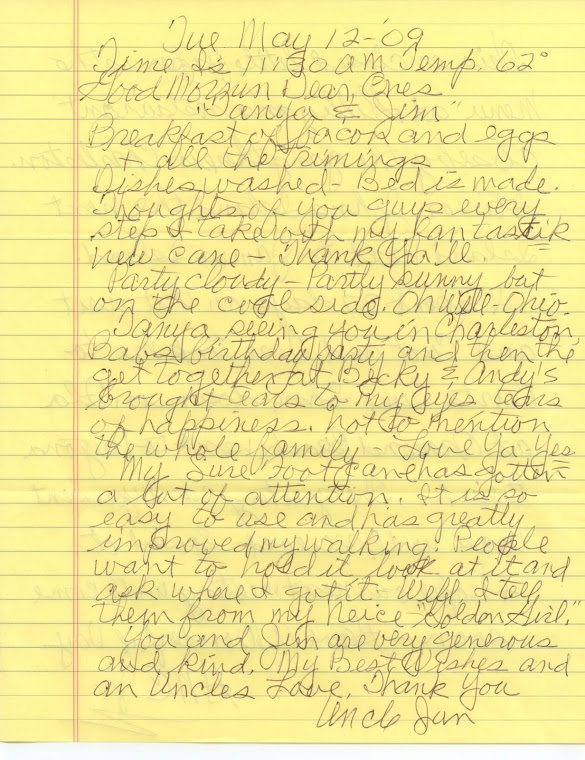 Tue May 12-'09
Time Is 11:30 am Temp. 62°
Good Morzun Dear, Ones
"Tanya & Jim"
Breakfast of bacon and eggs
+ all the trimings
Dishes washed - Bed is made.
Thoughts of you guys every
step I take with my fantastik
new cane - Thank Ya'll.
Party cloudy - Partly sunny but
on the cool side. Oh Well - Ohio.
Tanya seeing you in Charleston,
Babs birthday party and then the
get together at Becky & Andy's
brought tears to my eyes tears
of happiness. not to mention
the whole family Love Ya - Yes
My Sure Foot Cane has gotten
a lot of attention. It is so
easy to use and has greatly
improved my walking. People
want to hold it look at it and
ask where I got it. Well I tell
them from my neice - "Golden Girl."
You and Jim are very generous
and kind. My Best Wishes and
an Uncles Love, Thank You
Uncle Jim